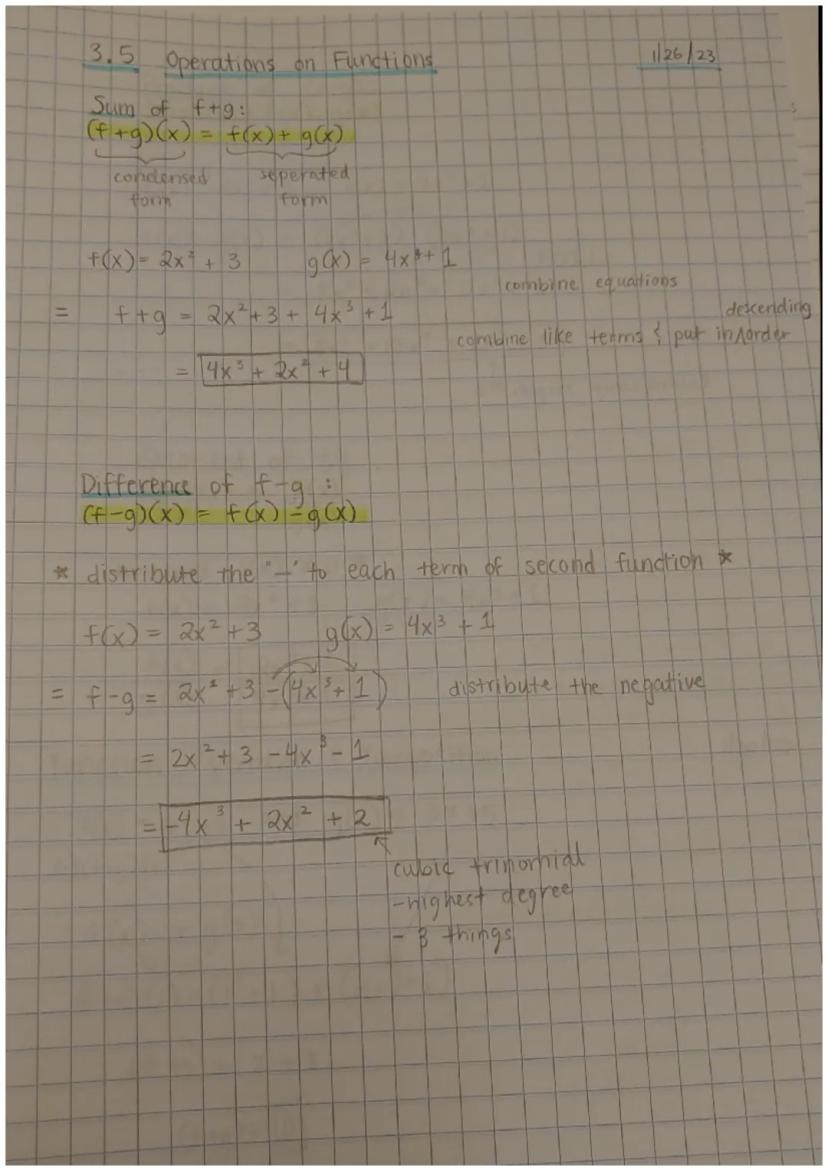 3.5 Operations on Functions 1/26/23
Sum of f+g:
(f+g)(x) = f(x) + g(x)
condensed seperated
form form
f(x) = 2x² + 3 g(x) = 4x³ + 1
combine equations
= f+g = 2x² + 3 + 4x³ + 1
descending
combine like terms & put in ∧ order
= 4x³ + 2x² + 4
Difference of f-g :
(f-g)(x) = f(x) - g(x)
* distribute the "-" to each term of second function *
f(x) = 2x² + 3 g(x) = 4x³ + 1
= f-g = 2x² + 3 -(4x³ + 1) distribute the negative
= 2x² + 3 - 4x³ - 1
= -4x³ + 2x² + 2
cubic trinomial
- highest degree
- 3 things